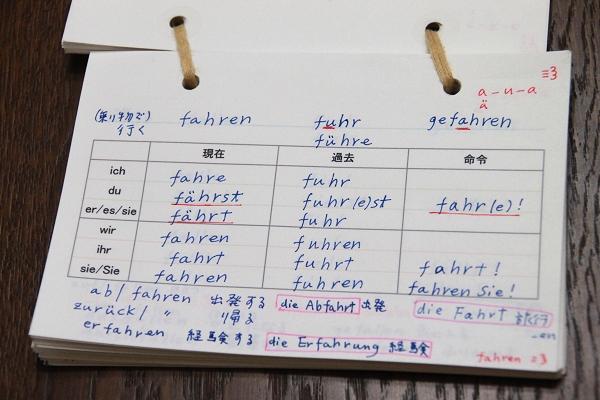 ミ3
a-u-a
ä
(乗り物で) fahren fuhr gefahren
行く führe
現在 過去 命令
ich fahre fuhr
du fährst fuhr(e)st fahr(e)!
er/es/sie fährt fuhr
wir fahren fuhren
ihr fahrt fuhrt fahrt!
sie/Sie fahren fuhren fahren Sie!
ab/fahren 出発する die Abfahrt 出発 die Fahrt 旅行
zurück/ 〃 帰る -en
erfahren 経験する die Erfahrung 経験
fahren ミ3